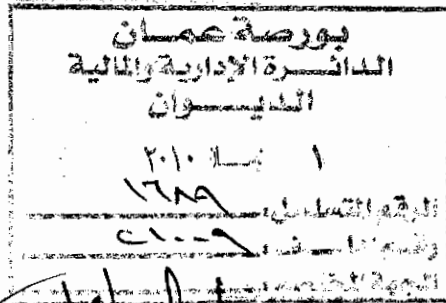 بورصة عمان
الدائرة الإدارية والمالية
الديوان
١ ٢٠١٠
الرقم المتسلسل: ١٦٨٩
رقم الملف:
الجهة المختصة: